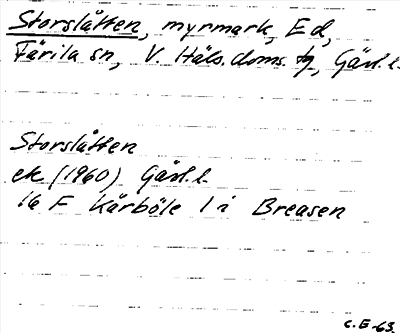 Storslåtten, myrmark, Ed,
Färila sn, V. Häls. doms. tg, Gävl. l.
Storslåtten
ek (1960) Gävl. l.
16 F Kårböle 1 i Breasen
C.E-63